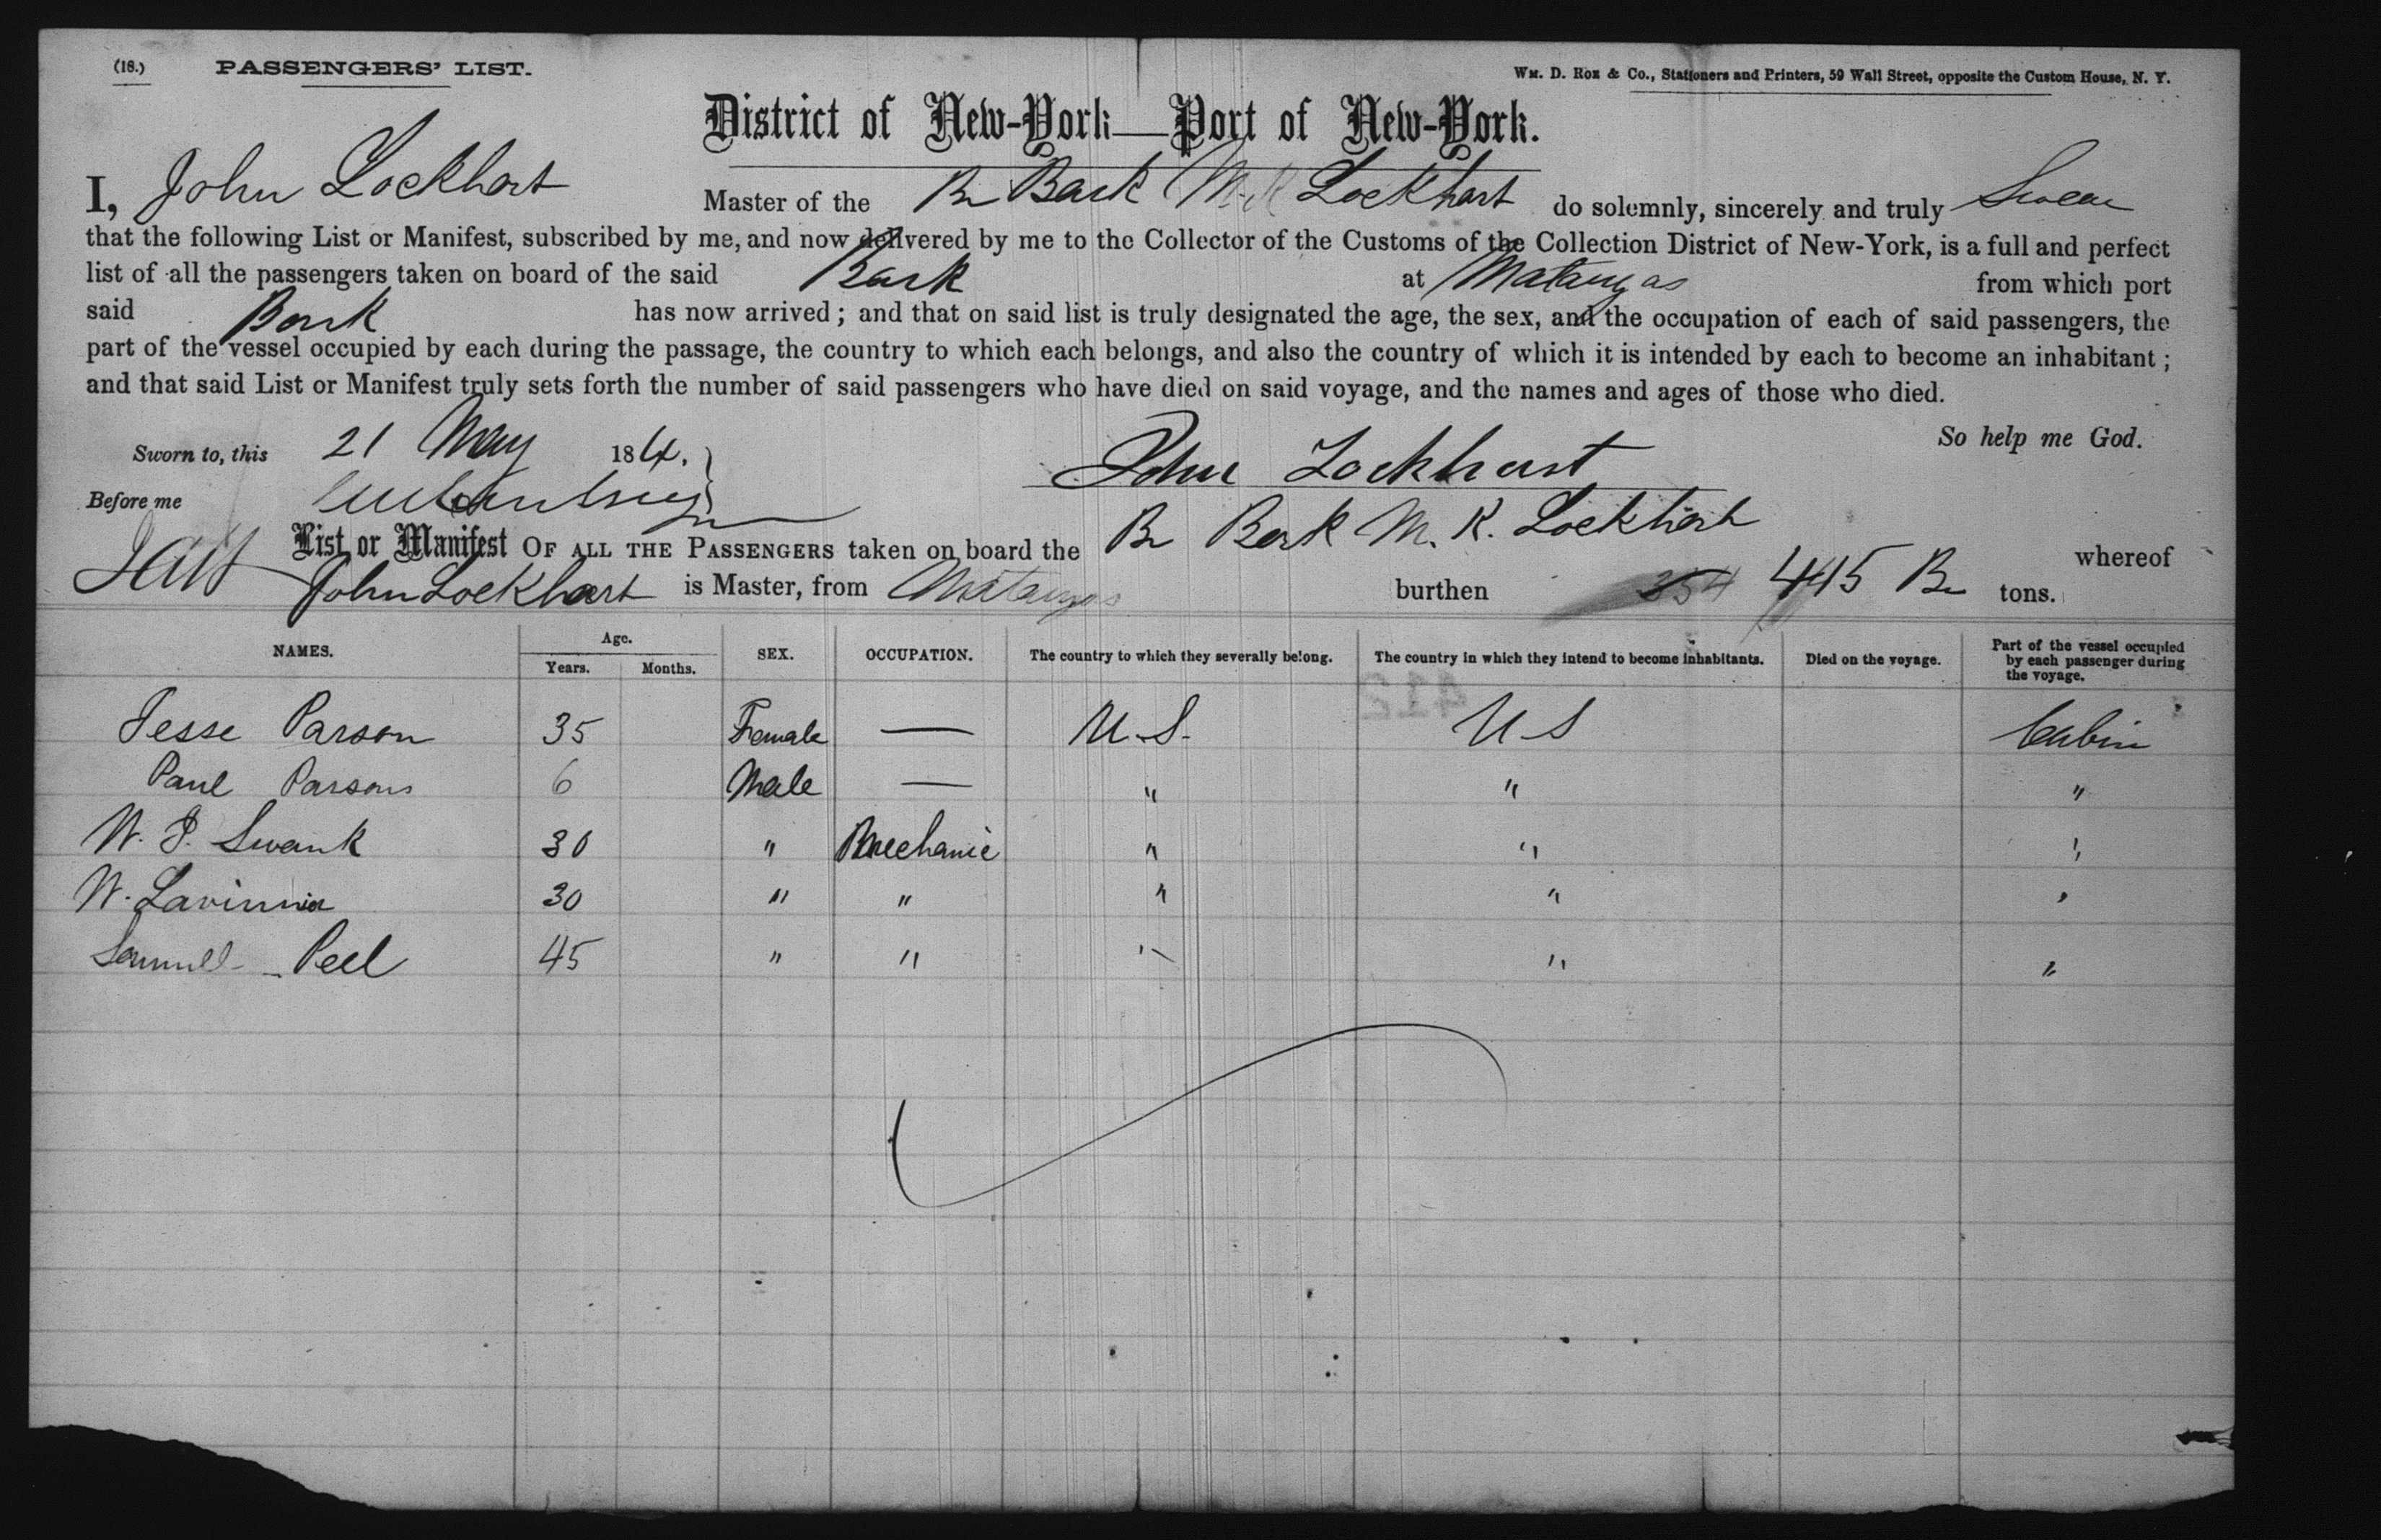 (18.) PASSENGERS' LIST. WM. D. ROE & Co., Stationers and Printers, 59 Wall Street, opposite the Custom House, N. Y.
District of New-York—Port of New-York.
I, John Lockhart Master of the Br Bark M. K Lockhart do solemnly, sincerely and truly Swear
that the following List or Manifest, subscribed by me, and now delivered by me to the Collector of the Customs of the Collection District of New-York, is a full and perfect
list of all the passengers taken on board of the said Bark at Matanzas from which port
said Bark has now arrived; and that on said list is truly designated the age, the sex, and the occupation of each of said passengers, the
part of the vessel occupied by each during the passage, the country to which each belongs, and also the country of which it is intended by each to become an inhabitant;
and that said List or Manifest truly sets forth the number of said passengers who have died on said voyage, and the names and ages of those who died.
So help me God.
Sworn to, this 21 May 186 John Lockhart
Before me
List or Manifest OF ALL THE PASSENGERS taken on board the Br Bark M. K. Lockhart whereof
John Lockhart is Master, from Matanzas burthen 354 445 Br tons.
NAMES. Age. Years. Months. SEX. OCCUPATION. The country to which they severally belong. The country in which they intend to become inhabitants. Died on the voyage. Part of the vessel occupied by each passenger during the voyage.
Jesse Parson 35 Female — U.S. U S Cabin
Paul Parsons 6 Male — " " "
W. J. Swank 30 " Mechanic " " "
W. Lavinnia 30 " " " " "
Samuell Peel 45 " " " " "